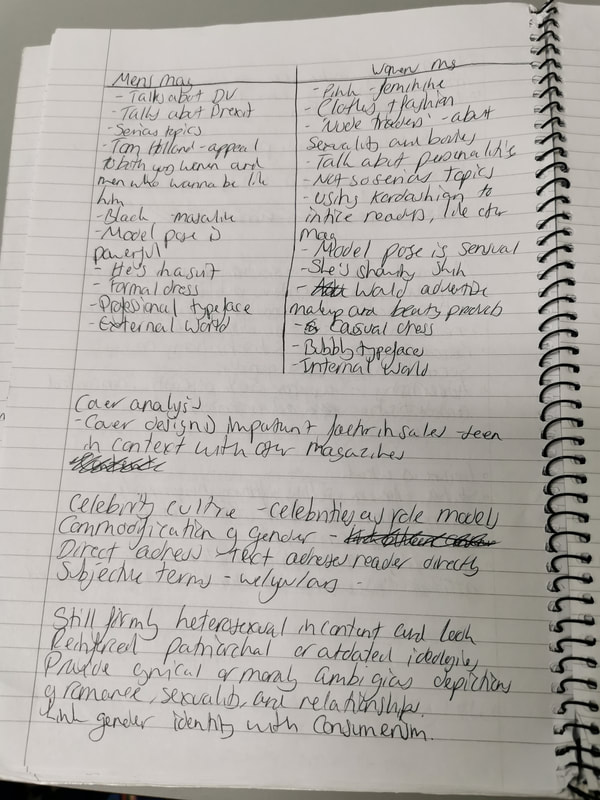 Mens mag
- Talks about DV
- Talks about Brexit
- Serias topics
- Tom Holland - appeal
to both yoo women and
men who wanna be like
him
- Black masculine
- Model pose is
powerful
- He's has suit
- Formal dress
- Professional typeface
- External world
Women mag
- Pink - feminine
- Clothes + fashion
- 'Nude Traders' - about
sexuality and bodies
- Talk about personalitis
- Not so serias topics
- Using Kardashian to
intice readers, like other
mag
- Model pose is sensual
- She's showing skin
- Would advertise
makeup and beauty products
- Casual dress
- Bubbly typefaces
- Internal world
Cover analysis
- Cover design is impartant factor in sales - seen
in context with other magazines
Celebrity culture - celebrities as role models
Commodification of gender -
Direct adress - text adresses reader directly
Subjective terms - we/you/ours -
Still firmly heterosexual in content and look
Reinforced patriarchal or outdated ideologies
Provide cynical or moraly ambigias depictions
of romance, sexuality, and relationships.
Link gender identity with consumerism.